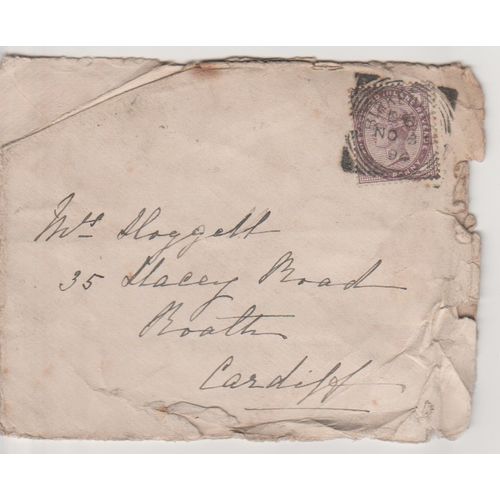 Mrs Hoggett
35 Stacey Road
Roath
Cardiff